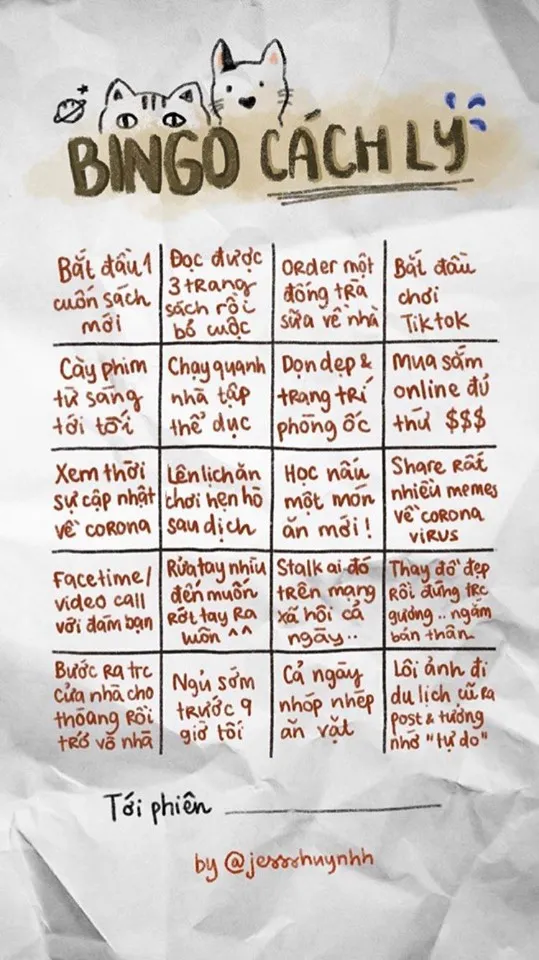 BINGO CÁCH LY
Bắt đầu 1
cuốn sách
mới
Đọc được
3 trang
sách rồi
bỏ cuộc
Order một
đống trà
sữa về nhà
Bắt đầu
chơi
Tiktok
Cày phim
từ sáng
tới tối
Chạy quanh
nhà tập
thể dục
Dọn dẹp &
trang trí
phòng ốc
Mua sắm
online đủ
thứ $$$
Xem thời
sự cập nhật
về corona
Lên lịch ăn
chơi hẹn hò
sau dịch
Học nấu
một món
ăn mới!
Share rất
nhiều memes
về corona
virus
Facetime/
video call
với đám bạn
Rửa tay nhìu
đến muốn
rớt tay ra
luôn ^^
Stalk ai đó
trên mạng
xã hội cả
ngày..
Thay đồ đẹp
rồi đứng trc
gương.. ngắm
bản thân
Bước ra trc
cửa nhà cho
thoáng rồi
trở vô nhà
Ngủ sớm
trước 9
giờ tối
Cả ngày
nhóp nhép
ăn vặt
Lôi ảnh đi
du lịch cũ ra
post & tưởng
nhớ "tự do"
Tới phiên
by @jessshuynhh